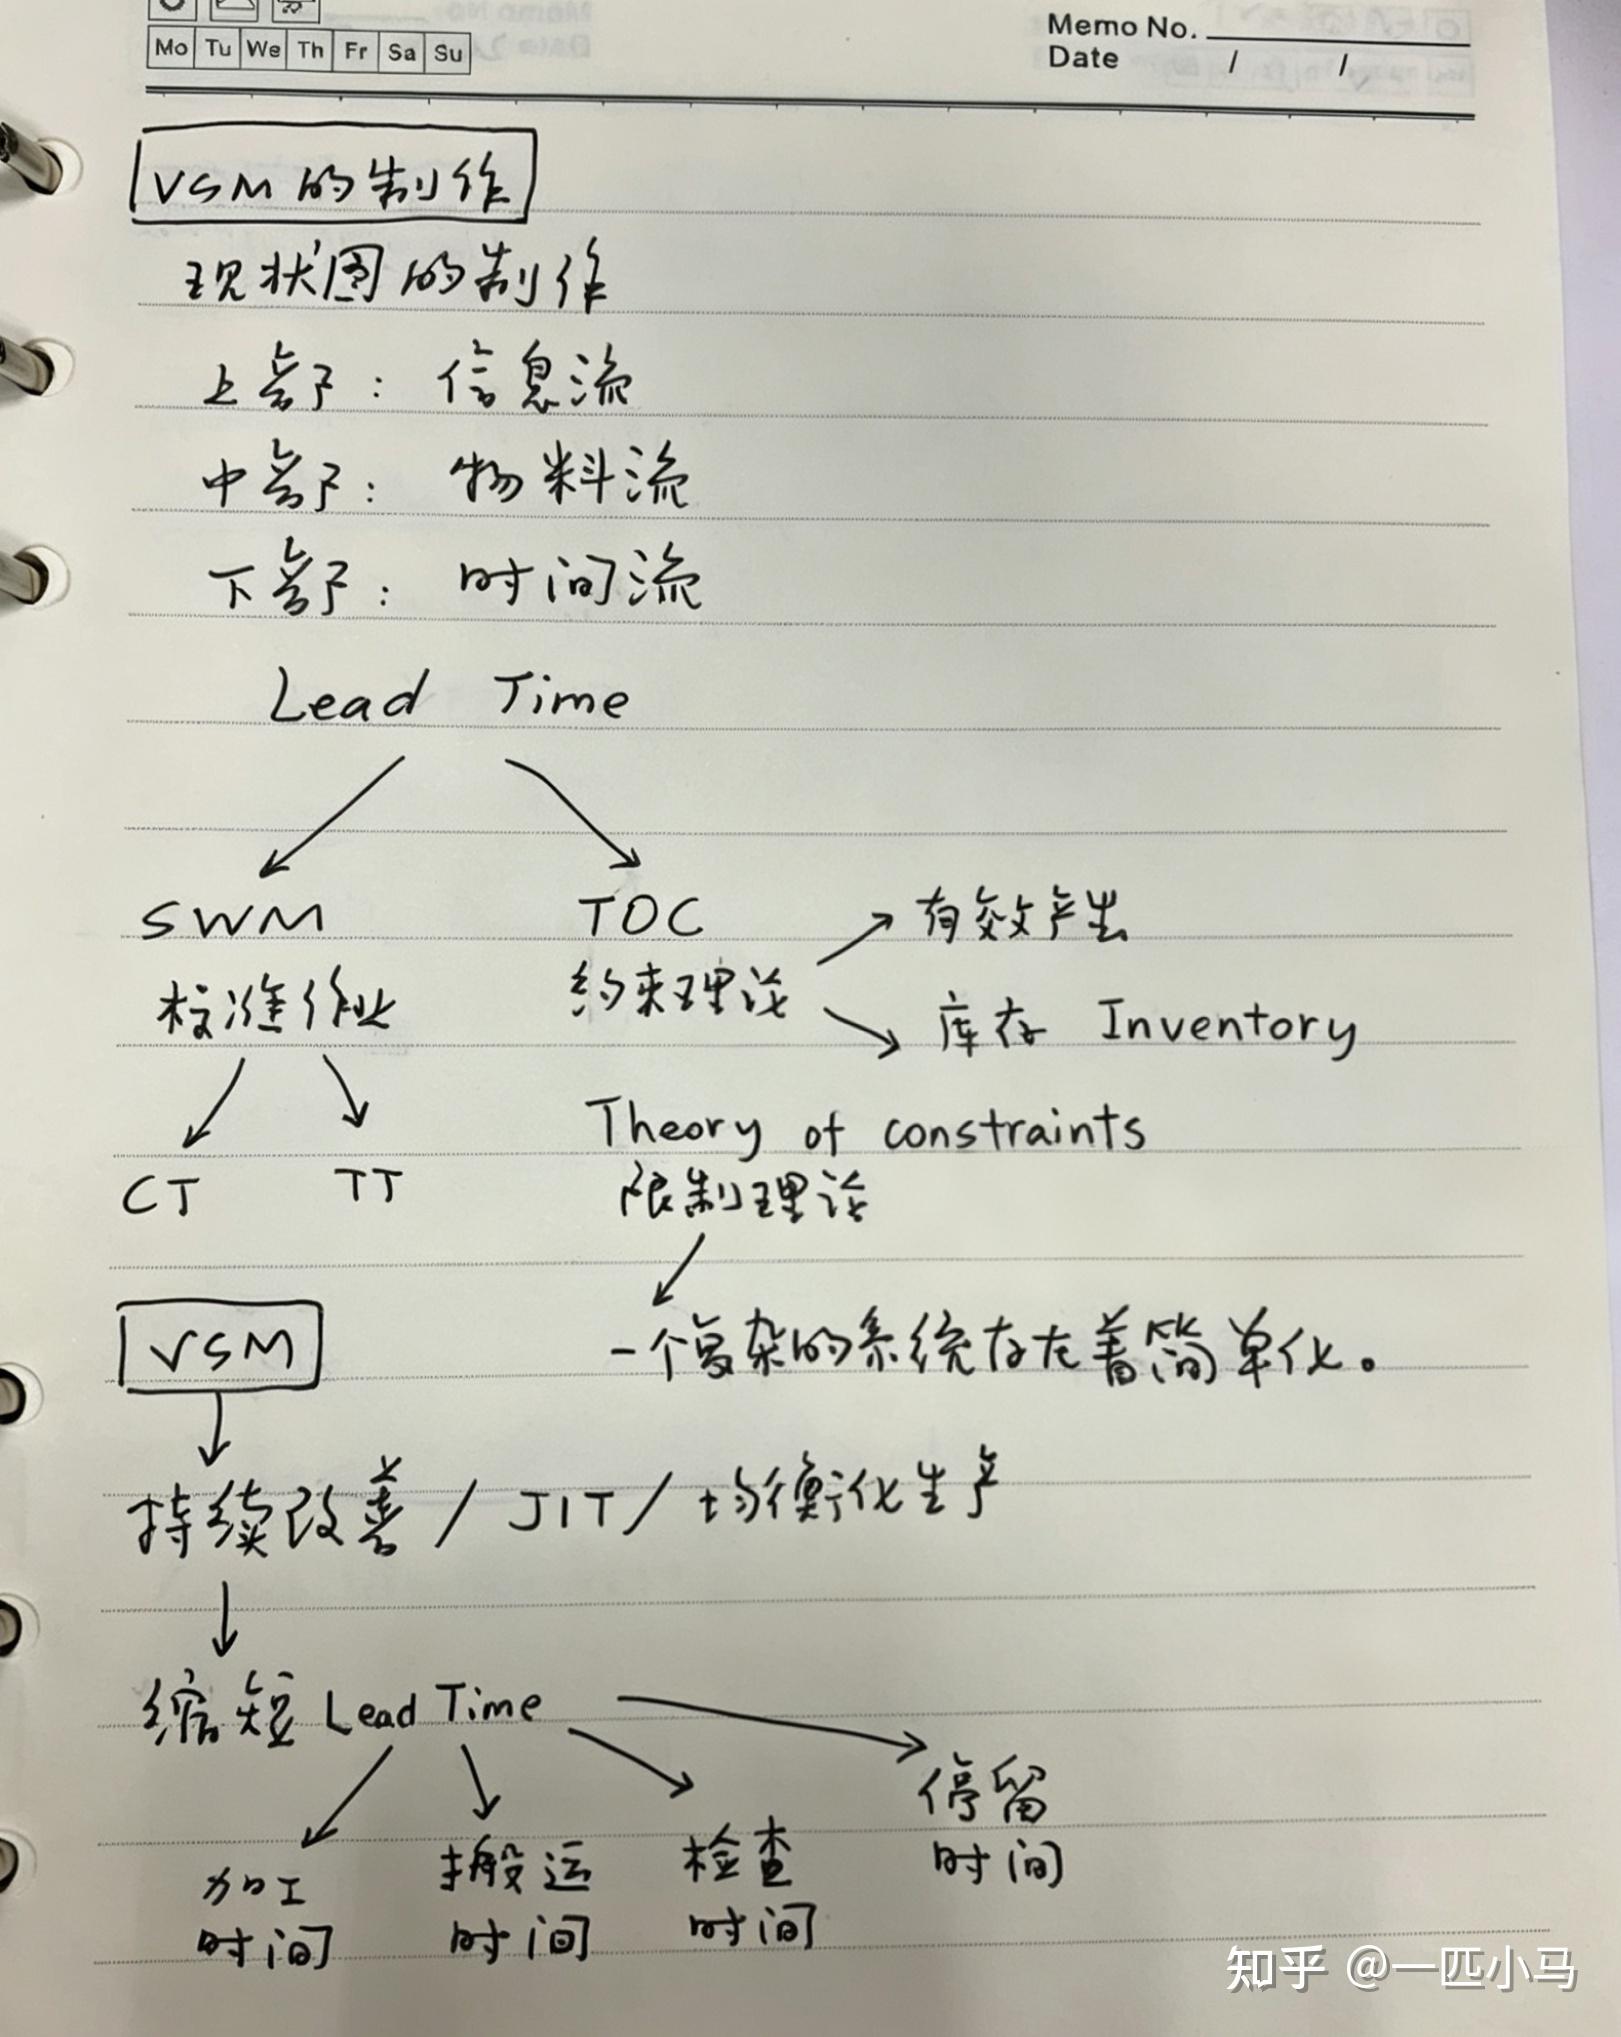 Mo Tu We Th Fr Sa Su
Memo No.
Date / /
VSM的制作
现状图的制作
上部：信息流
中部：物料流
下部：时间流
Lead Time
SWM
标准作业
CT
TT
TOC
约束理论
有效产出
库存 Inventory
Theory of constraints
限制理论
一个复杂的系统存在着简单化。
VSM
持续改善 / JIT / 均衡化生产
缩短 Lead Time
加工
时间
搬运
时间
检查
时间
停留
时间
知乎 @一匹小马